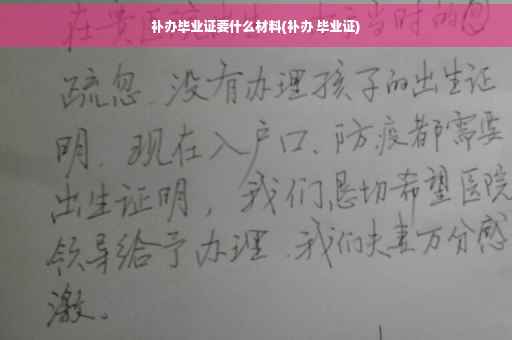 补办毕业证要什么材料(补办 毕业证)
在贵医院出生，当时的
疏忽、没有办理孩子的出生证
明、现在入户口、防疫都需要
出生证明，我们恳切希望医院
领导给予办理、我们夫妻万分感
激。